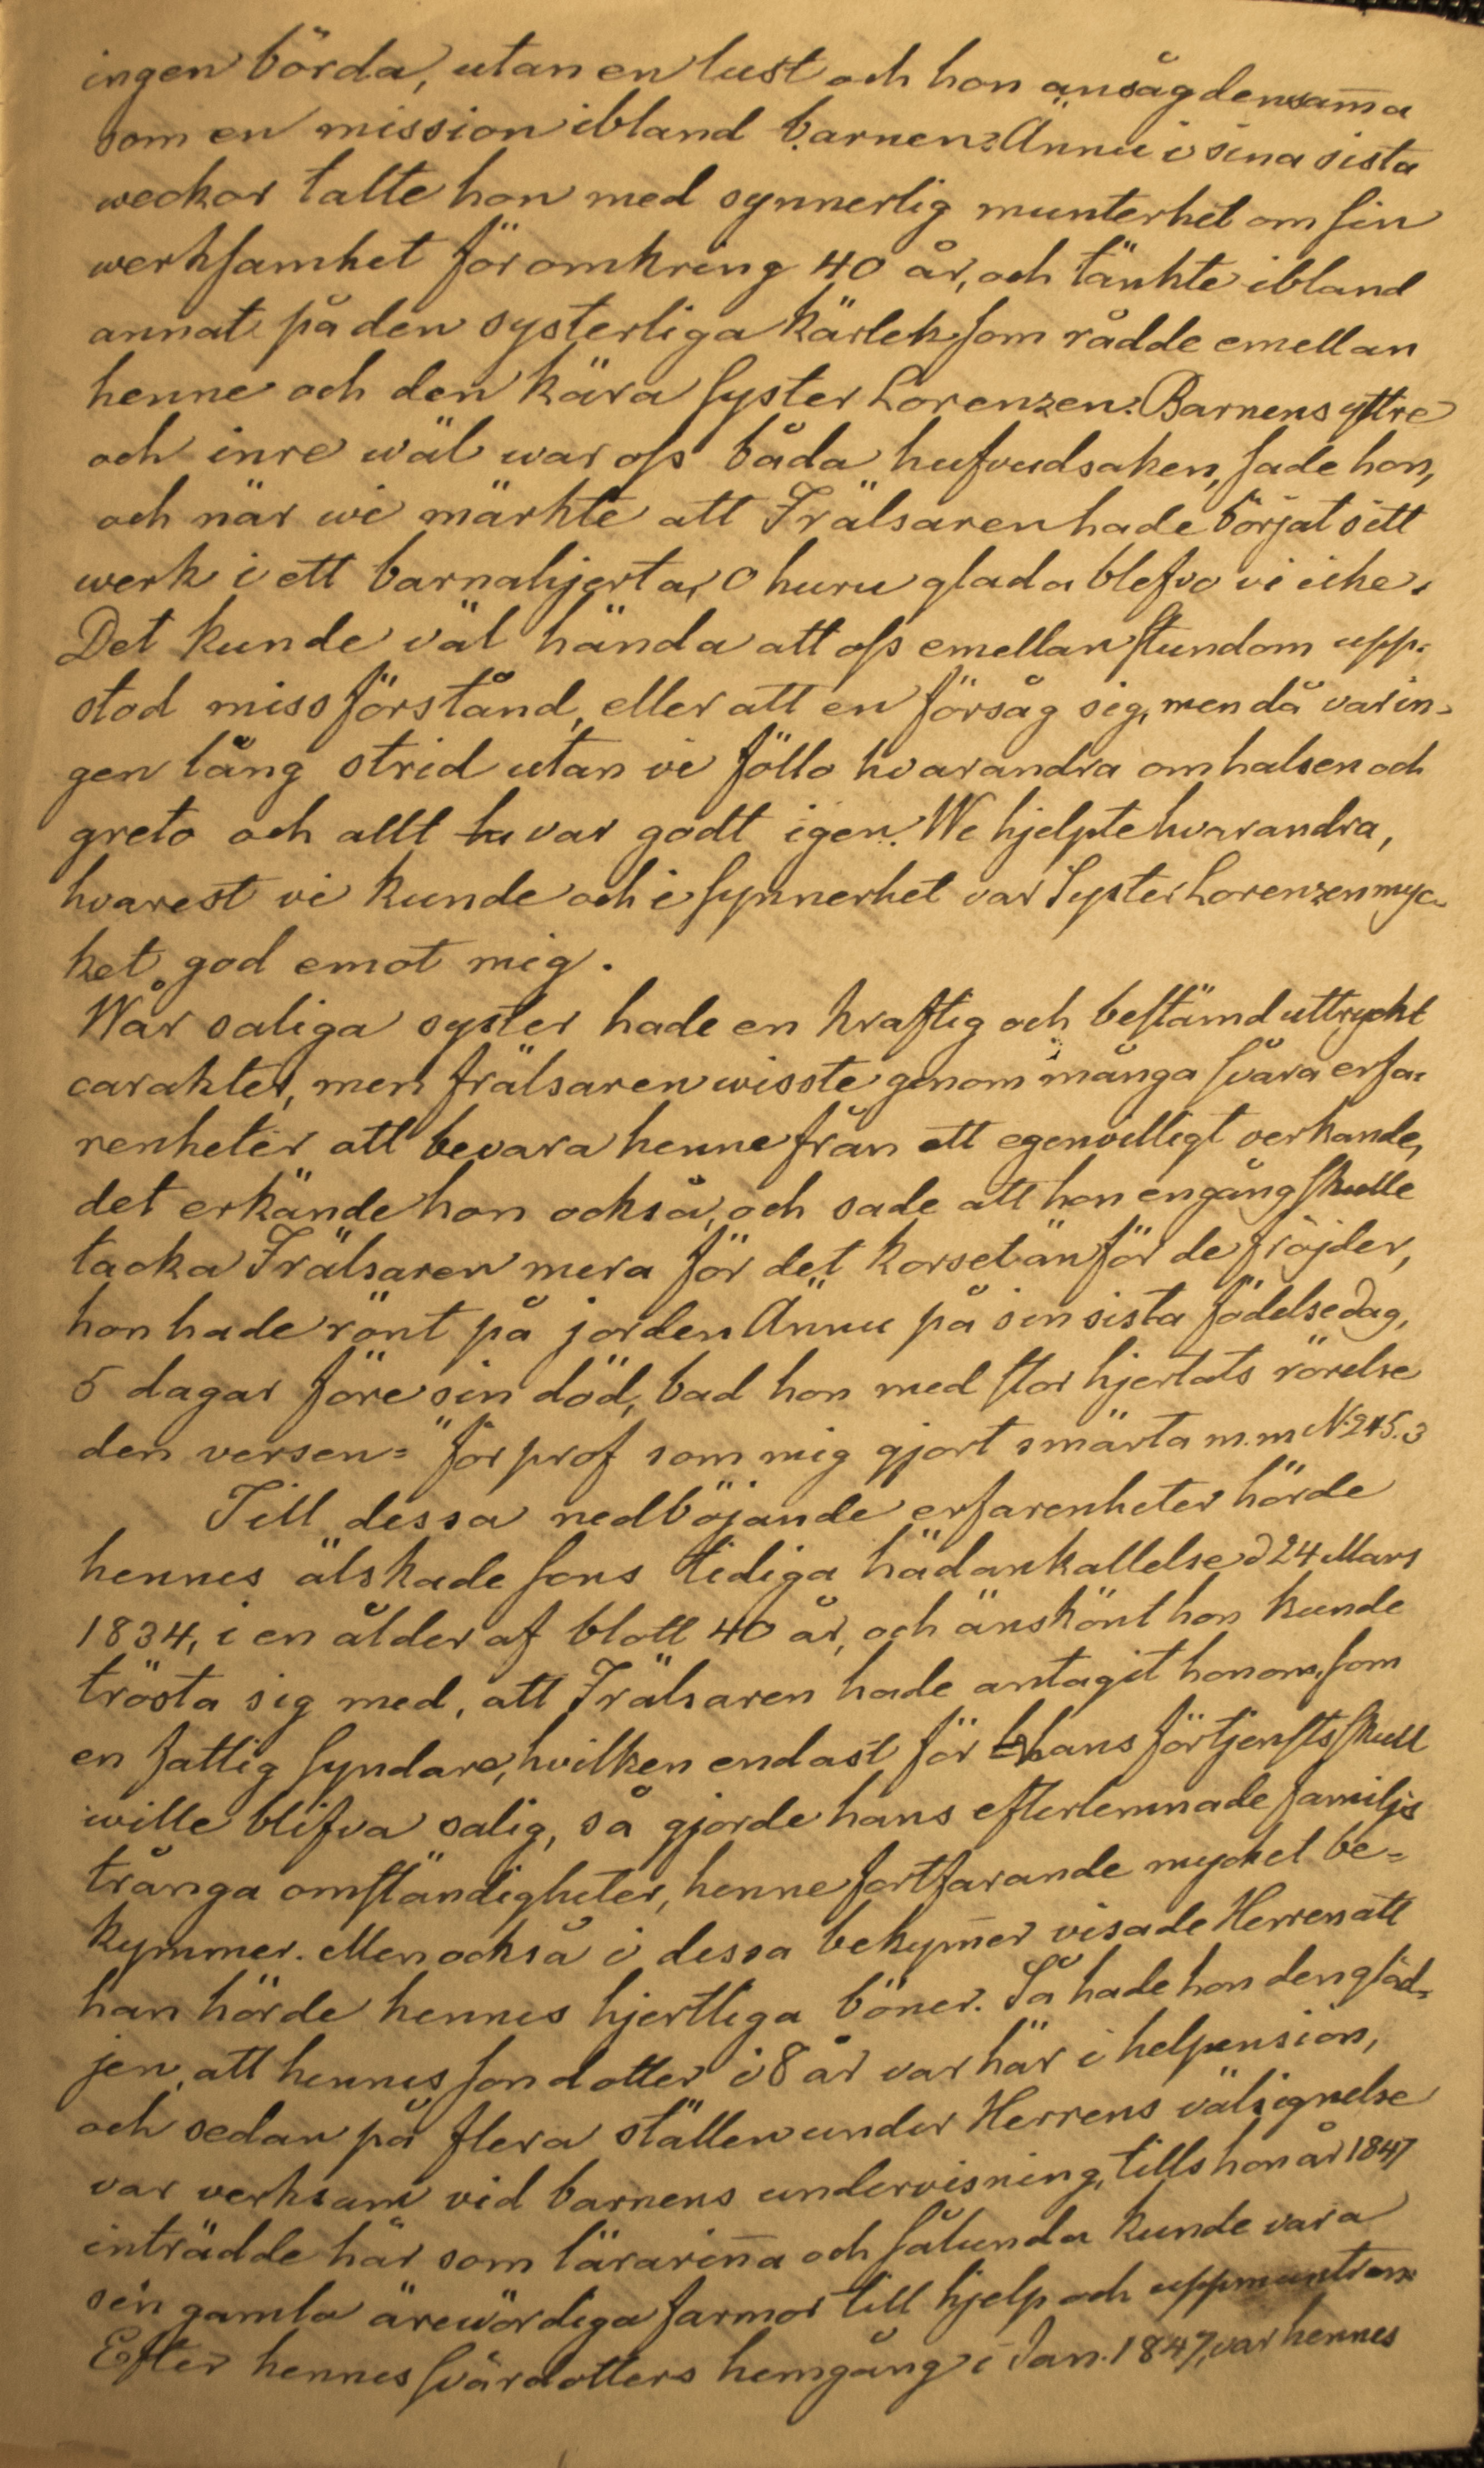 ingen börda, utan en lust och hon ansåg densam̄a
som en mission ibland barnen. Ännu i sina sista
weckor talte hon med synnerlig munterhet om sin
werksamhet för omkring 40 år, och tänkte ibland
annat på den systerliga kärlek som rådde emellan
henne och den kära syster Lorenzen. Barnens yttre
och inre wäl war oss båda hufvudsaken, sade hon,
och när wi märkte att Frälsaren hade börjat sitt
werk i ett barnahjerta, O huru glada blefvo vi icke.
Det kunde väl hända att oss emellan stundom upp-
stod missförstånd, eller att en försåg sig, men då var in-
gen lång strid utan vi föllo hvarandra om halsen och
greto och allt var godt igen. We hjelpte hvarandra,
hvarest vi kunde och i synnerhet var Syster Lorenzen myc-
ket god emot mig.
Wår saliga syster hade en kraftig och bestämd uttryckt
carakter, men frälsaren wisste genom många svåra erfa-
renheter att bevara henne från ett egenvilligt verkande,
det erkände hon också, och sade att hon engång skulle
tacka Frälsaren mera för det korset än för de fröjder,
hon hade rönt på jorden Ännu på sin sista födelsedag,
5 dagar före sin död, bad hon med stor hjertats rörelse
den versen = "för prof som mig gjort smärta m.m N. 245.3
Till dessa nedböjande erfarenheter hörde
hennes älskade sons tidiga hädankallelse d 24 Mars
1834, i en ålder af blott 40 år, och änskönt hon kunde
trösta sig med, att Frälsaren hade antagit honom, som
en fattig syndare, hvilken endast för hans förtjensts skull
wille blifva salig, så gjorde hans efterlemnade familjs
trånga omständigheter, henne fortfarande mycket be-
kymmer. Men också i dessa bekym̄er visade Herren att
han hörde hennes hjertliga böner. Så hade hon den gläd-
jen, att hennes sondotter i 8 år var här i helpension,
och sedan på flera ställen under Herrens välsignelse
var verksam vid barnens undervisning, tills hon år 1847
inträdde här som lärarin̄a och sålunda kunde vara
sin gamla ärewördiga farmor till hjelp och uppmuntran.
Efter hennes svärdotters hemgång i Jan. 1847, var hennes